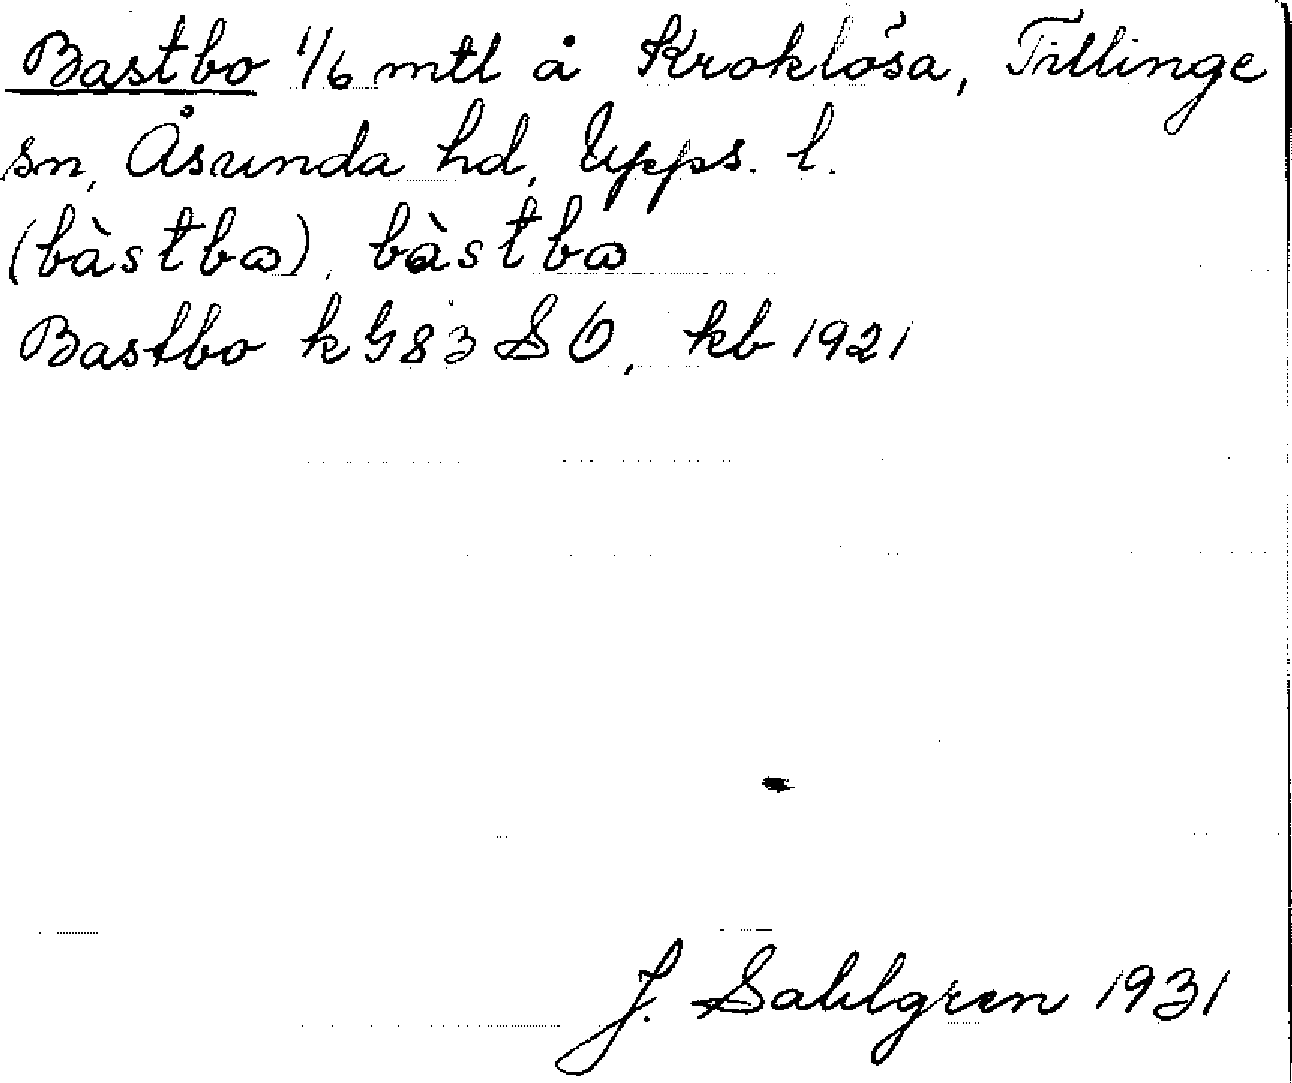 Bastbo 1/6 mtl å Kroklösa, Tillinge
sn, Åsunda hd, Upps. l.
(bàstbɷ), bàstbɷ
Bastbo k G 83 SO, kb 1921
J. Sahlgren 1931